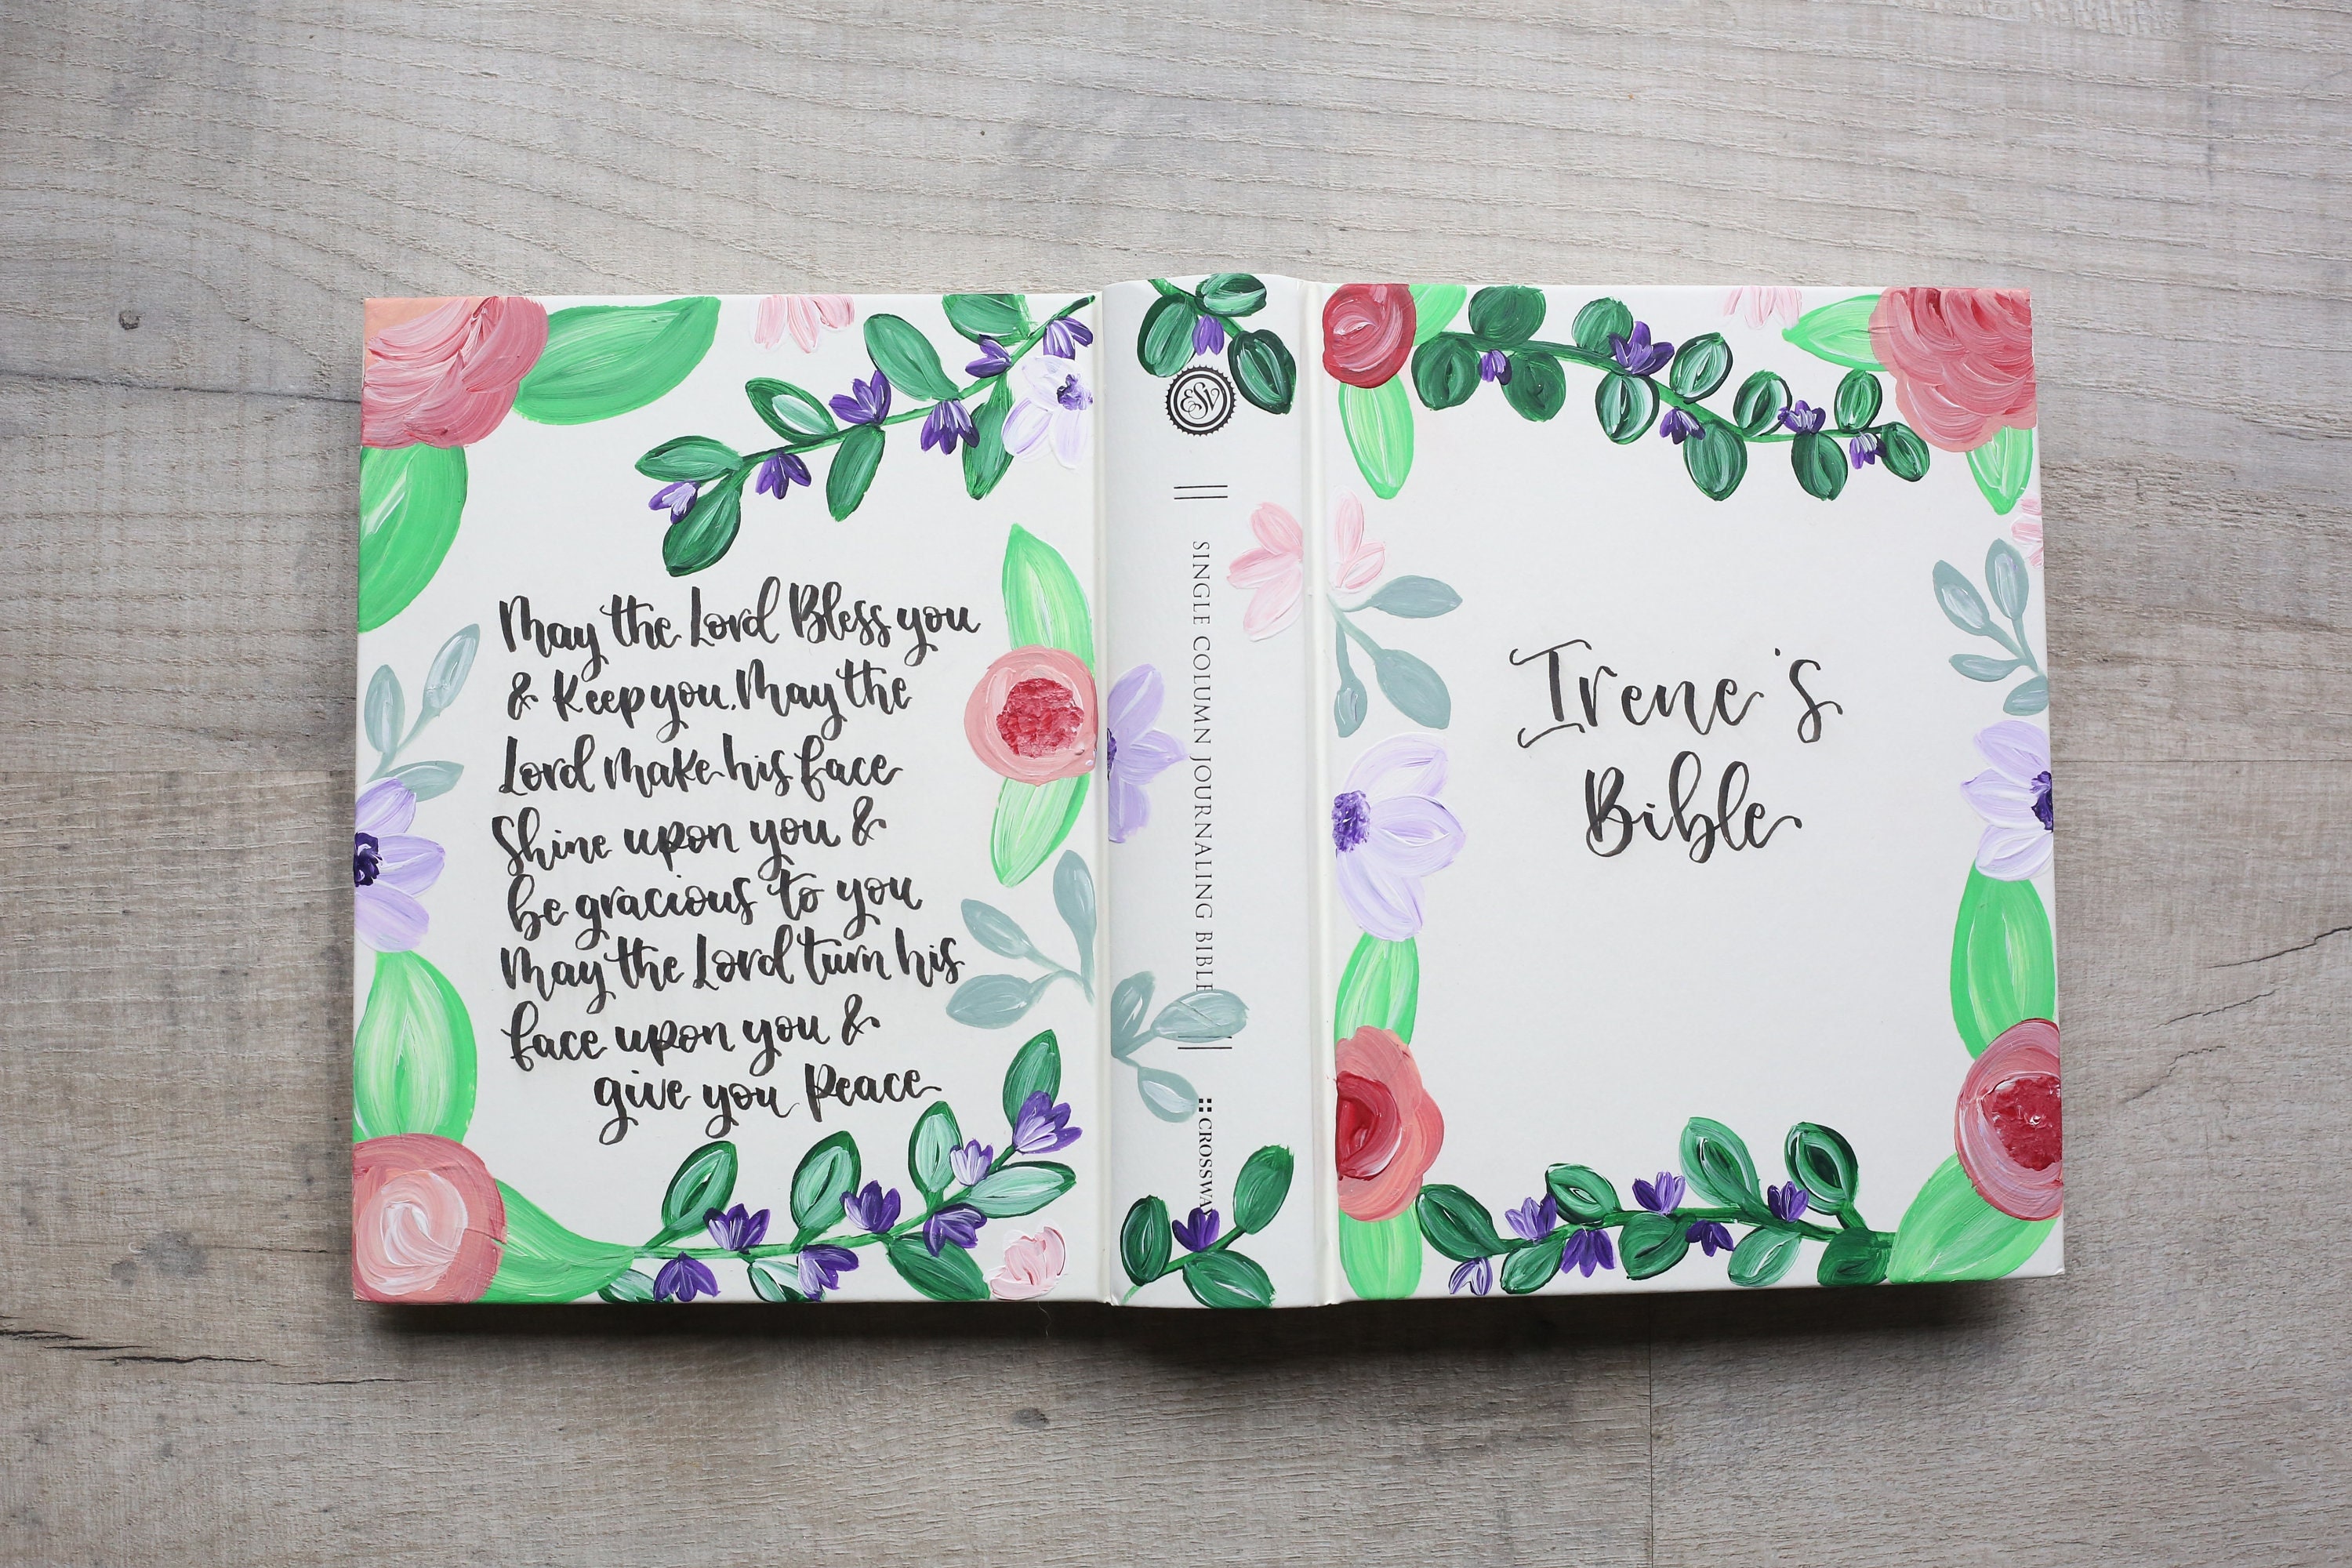 May the Lord Bless you
& Keep you. May the
Lord make his face
Shine upon you &
be gracious to you
May the Lord turn his
face upon you &
give you Peace
ESV
SINGLE COLUMN JOURNALING BIBLE
CROSSWAY
Irene's
Bible